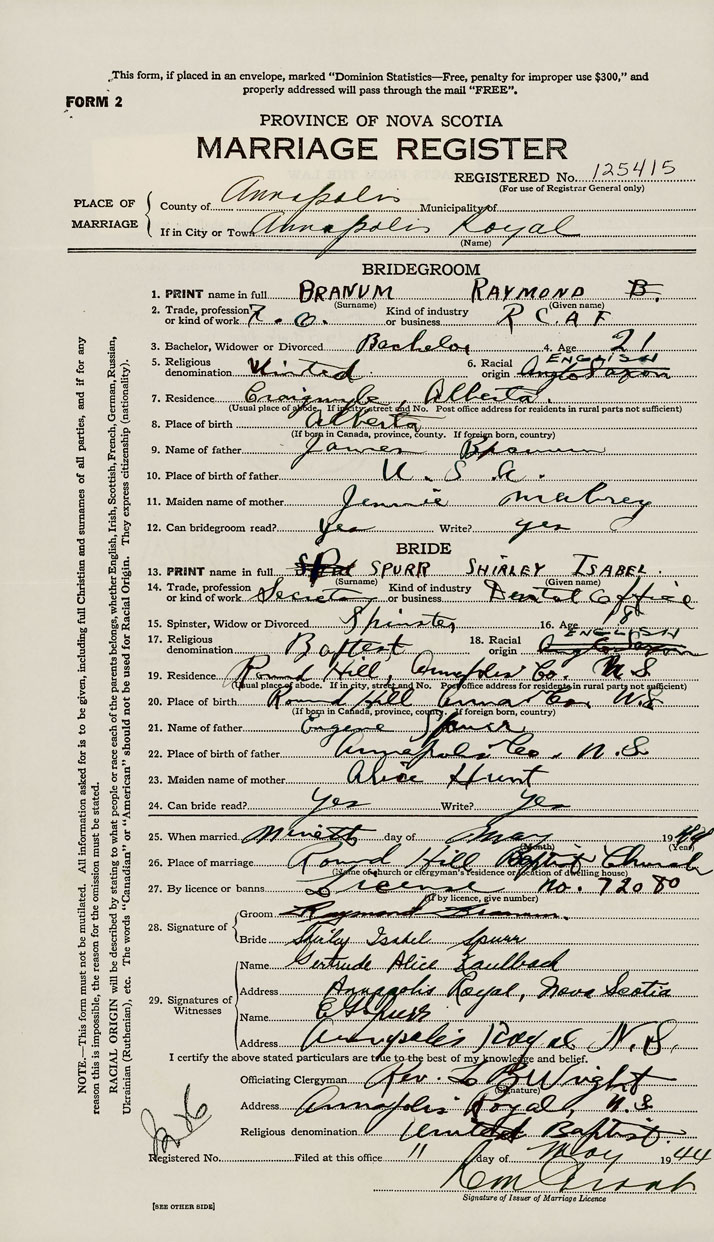 This form, if placed in an envelope, marked “Dominion Statistics—Free, penalty for improper use $300,” and
properly addressed will pass through the mail “FREE”.
FORM 2
PROVINCE OF NOVA SCOTIA
MARRIAGE REGISTER
REGISTERED No. 125415
(For use of Registrar General only)
PLACE OF MARRIAGE
County of Annapolis Municipality of
If in City or Town Annapolis Royal
(Name)
BRIDEGROOM
1. PRINT name in full BRANUM RAYMOND B.
(Surname) (Given name)
2. Trade, profession or kind of work Kind of industry or business R C A F
3. Bachelor, Widower or Divorced Bachelor 4. Age 21
5. Religious denomination United 6. Racial origin ENGLISH Anglo Saxon
7. Residence Craigmyle, Alberta.
(Usual place of abode. If in city, street and No. Post office address for residents in rural parts not sufficient)
8. Place of birth Alberta
(If born in Canada, province, county. If foreign born, country)
9. Name of father James Branum
10. Place of birth of father U. S. A.
11. Maiden name of mother Jennie
12. Can bridegroom read? Yes Write? yes
BRIDE
13. PRINT name in full SPURR SHIRLEY ISABEL.
(Surname) (Given name)
14. Trade, profession or kind of work Kind of industry or business Dental Office
15. Spinster, Widow or Divorced Spinster 16. Age 18
17. Religious denomination Baptist 18. Racial origin ENGLISH Anglo Saxon
19. Residence Round Hill, Annapolis Co. N. S
(Usual place of abode. If in city, street and No. Post office address for residents in rural parts not sufficient)
20. Place of birth Round Hill Anna Co. N.S
(If born in Canada, province, county. If foreign born, country)
21. Name of father Eugene Spurr
22. Place of birth of father Annapolis Co. N. S
23. Maiden name of mother Alice Hunt
24. Can bride read? Yes Write? Yes
25. When married day of May 1944
(Month) (Year)
26. Place of marriage Round Hill Baptist Church
(Name of church or clergyman's residence or location of dwelling house)
27. By licence or banns License No. 72080
(If by licence, give number)
28. Signature of
Groom Raymond Branum.
Bride Shirley Isabel Spurr
29. Signatures of Witnesses
Name Gertrude Alice Zaulbad
Address Annapolis Royal, Nova Scotia
Name Spurr
Address Annapolis Royal N. S.
I certify the above stated particulars are true to the best of my knowledge and belief.
Officiating Clergyman Rev. L B Wright
(Signature)
Address Annapolis Royal, N. S
Religious denomination United Baptist.
Registered No. Filed at this office 11 day of May 1944
Signature of Issuer of Marriage Licence
[SEE OTHER SIDE]
NOTE.—This form must not be mutilated. All information asked for is to be given, including full Christian and surnames of all parties, and if for any
reason this is impossible, the reason for the omission must be stated.
RACIAL ORIGIN will be described by stating to what people or race each of the parents belongs, whether English, Irish, Scottish, French, German, Russian,
Ukrainian (Ruthenian), etc. The words “Canadian” or “American” should not be used for Racial Origin. They express citizenship (nationality).